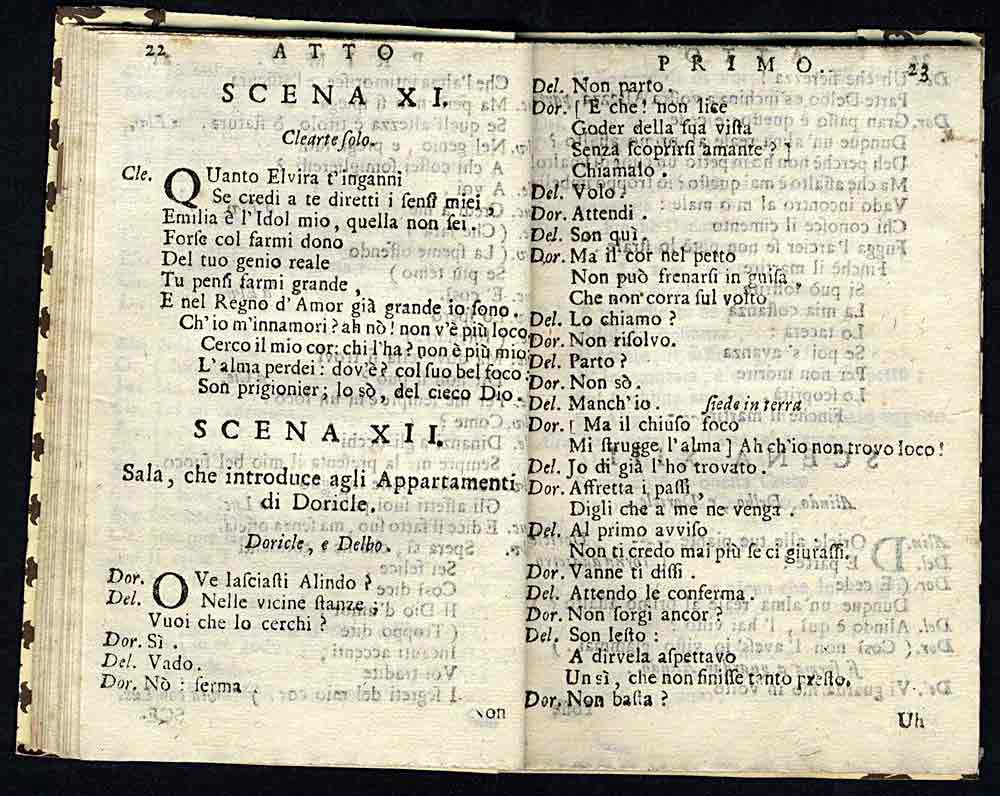 22 ATTO
SCENA XI.
Clearte ſolo.
Cle. QUanto Elvira t'inganni
Se credi a te diretti i ſenſi miei
Emilia è l'Idol mio, quella non ſei.
Forſe col farmi dono
Del tuo genio reale
Tu penſi farmi grande,
E nel Regno d'Amor già grande io ſono.
Ch'io m'innamori? ah nò! non v'è più loco
Cerco il mio cor: chi l'ha? non è più mio
L'alma perdei: dov'è? col ſuo bel foco
Son prigionier; lo sò, del cieco Dio.
SCENA XII.
Sala, che introduce agli Appartamenti
di Doricle.
Doricle, e Delbo.
Dor. OVe laſciaſti Alindo?
Del. Nelle vicine ſtanze;
Vuoi che lo cerchi?
Dor. Sì.
Del. Vado.
Dor. Nò: ferma
Non
PRIMO. 23
Del. Non parto.
Dor. [E che! non lice
Goder della ſua viſta
Senza ſcoprirſi amante?]
Chiamalo.
Del. Volo?
Dor. Attendi.
Del. Son quì.
Dor. Ma il cor nel petto
Non può frenarſi in guiſa,
Che non corra ſul volto
Del. Lo chiamo?
Dor. Non riſolvo.
Del. Parto?
Dor. Non sò.
Del. Manch'io. ſiede in terra
Dor. [Ma il chiuſo foco
Mi ſtrugge l'alma] Ah ch'io non trovo loco!
Del. Jo di già l'ho trovato.
Dor. Affretta i paſſi,
Digli che a me ne venga.
Del. Al primo avviſo
Non ti credo mai più ſe ci giuraſſi.
Dor. Vanne ti diſſi.
Del. Attendo le conferma.
Dor. Non ſorgi ancor?
Del. Son leſto:
A dirvela aſpettavo
Un sì, che non finiſſe tanto preſto.
Dor. Non baſta?
Uh